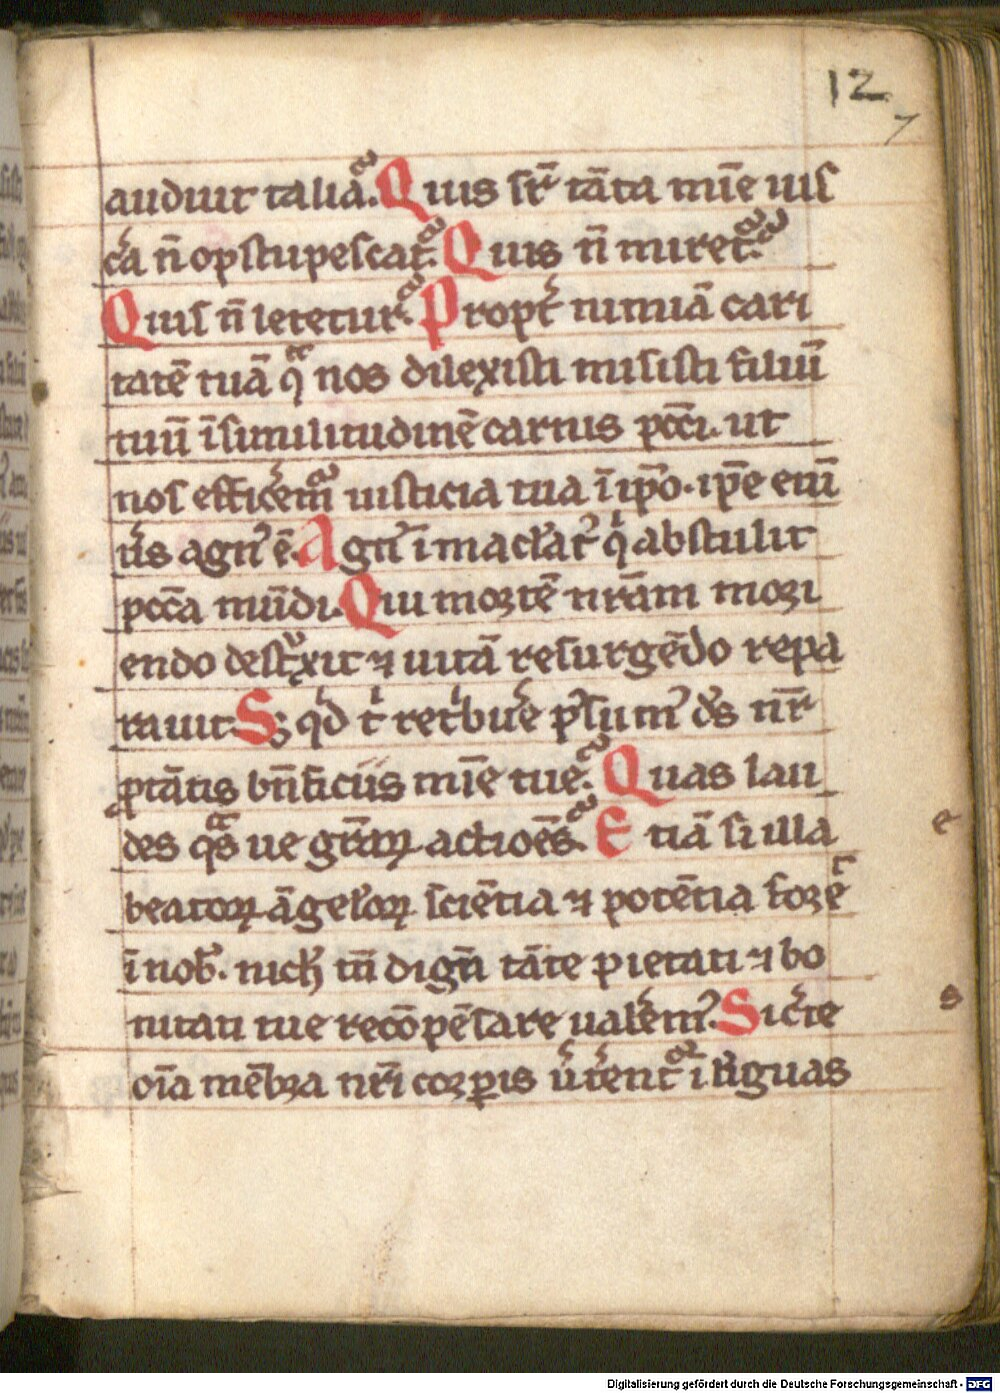 12
7
audiuit talia. Quis sr̄ tāta mīe uis
c̄a n̄ opstupescat. Quis n̄ miret̄.
Quis n̄ letetur. Propt̄ nimiā cari
tatē tuā q nos dilexisti misisti filiū
tuū ī similitudinē carnis pcc̄i. ut
nos efficēm̄ iusticia tua ī ip̄o. ip̄e eni̅
u̅s agn᷒ ē. Agn᷒ īmaclat᷒ qͥ abstulit
pcc̄a mūdi. Qui mortē nr̄am mori
endo destͮxit ⁊ uitā resurgēdo repa
rauit. Sꝫ qͥd t̄ retͥbue p̄sum᷒ ds̄ nr̄
ꝓ tātis bn̄ficiis mīe tue. Quas lau
des qͣs ue gr̄aꝝ actiōes. Etiā si illa
beatoꝝ āgeloꝝ sciētia ⁊ potētia forēt
ī nob᷒. nich̄ tn̄ dign̄ tāte pietati ⁊ bo
nitati tue recōpēsare ualem᷒. Si cte
oīa mēbra nr̄i corꝑis ūtent̄ ī līguas
e
s
Digitalisierung gefördert durch die Deutsche Forschungsgemeinschaft - DFG